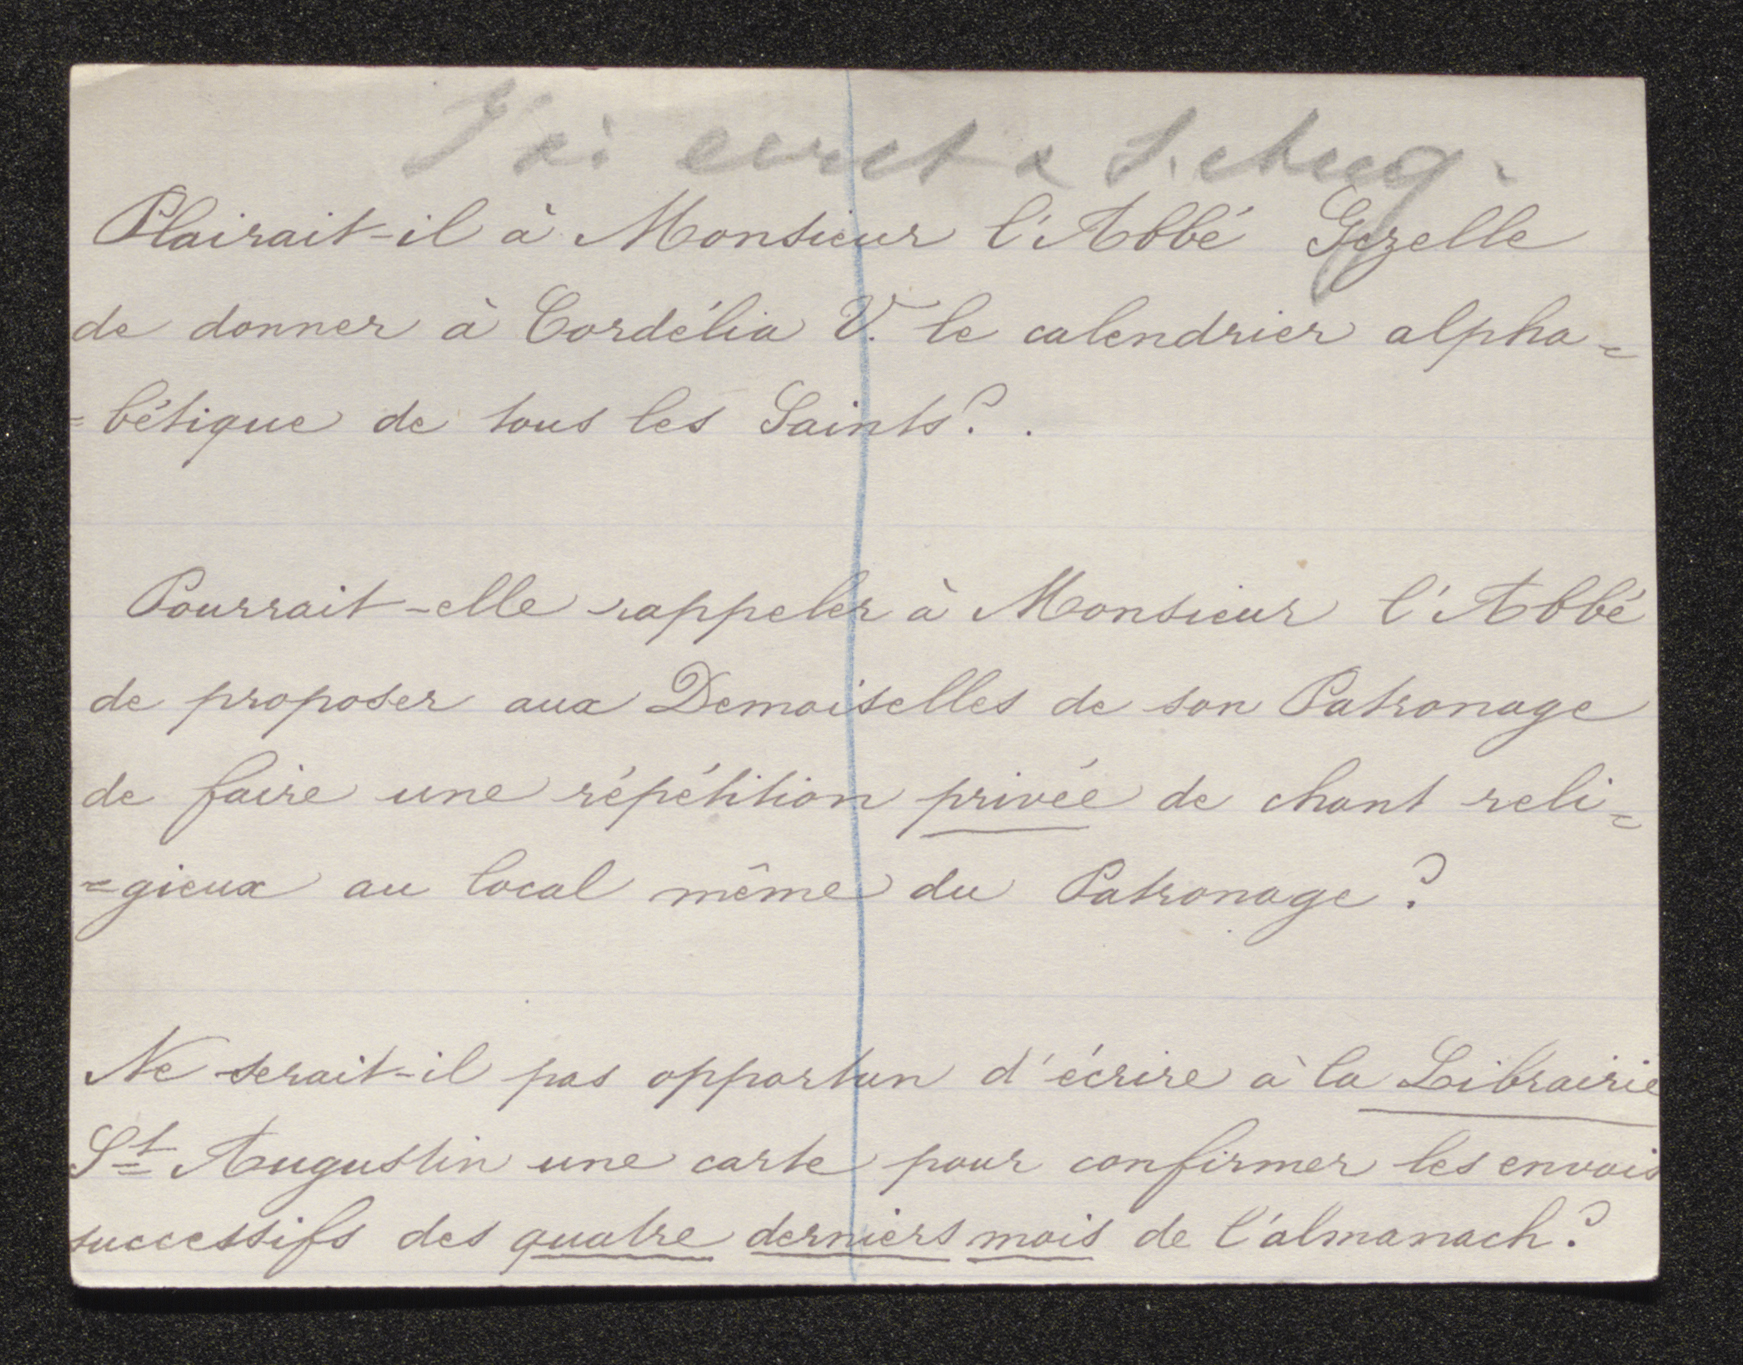 J'ai ecrit a S. Aug.
Plairait-il à Monsieur l'Abbé Gezelle
de donner à Cordélia V. le calendrier alpha=
=bétique de tous les Saints? .
Pourrait-elle rappeler à Monsieur l'Abbé
de proposer aux Demoiselles de son Patronage
de faire une répétition privée de chant reli=
=gieux au local même du Patronage?
Ne serait-il pas opportun d'écrire à la Librairie
St Augustin une carte pour confirmer les envois
successifs des quatre derniers mois de l'almanach?